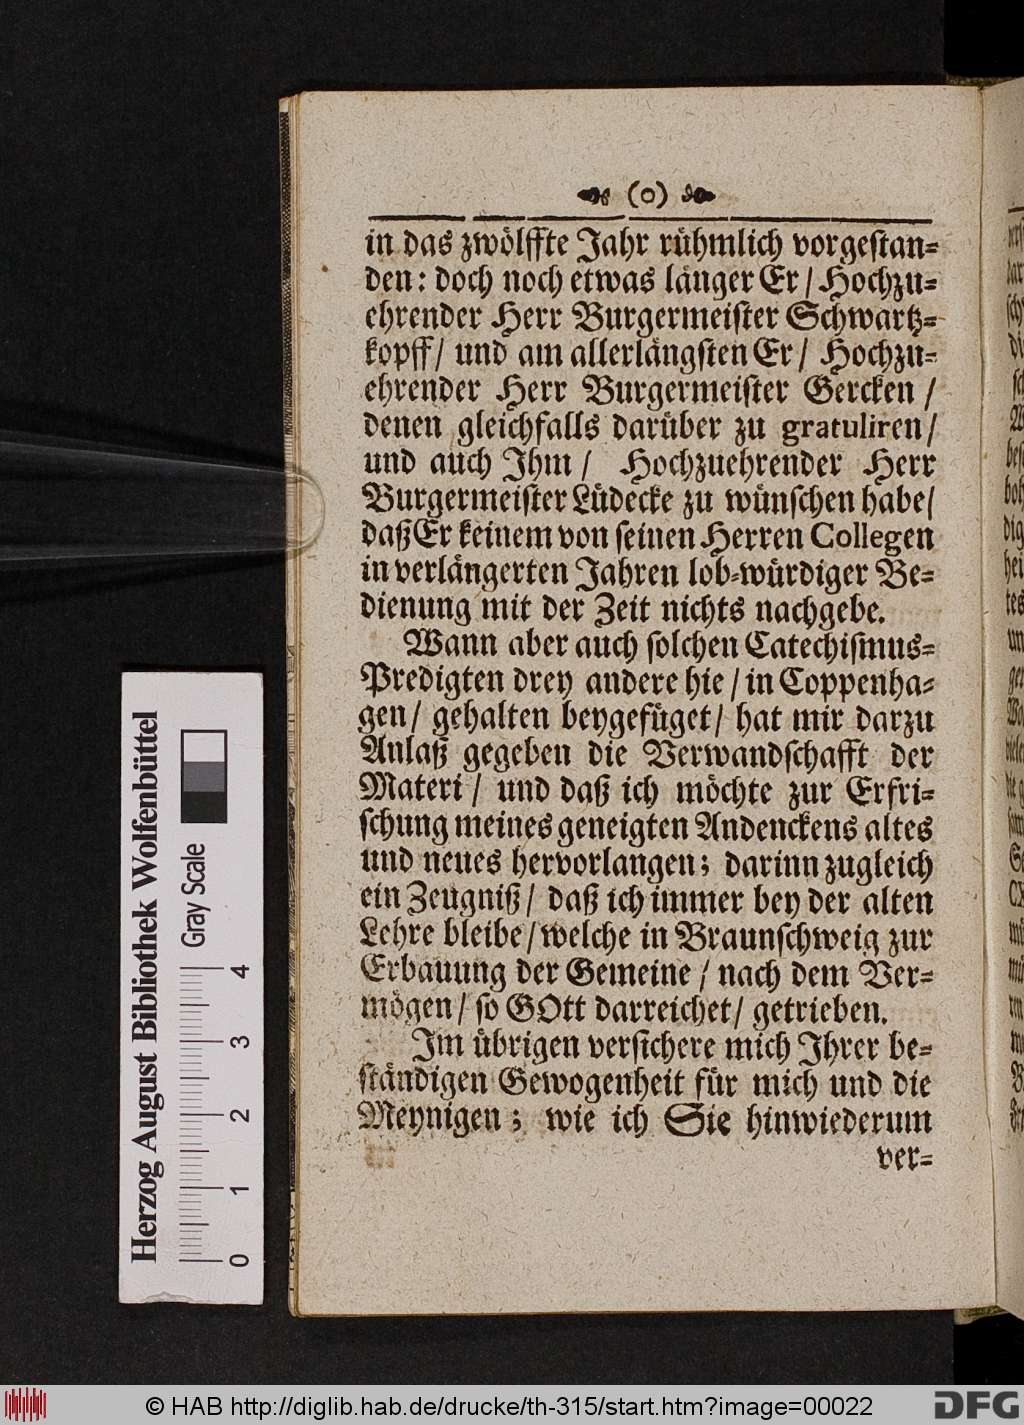 (o)
in das zwölffte Jahr rühmlich vorgestan-
den: doch noch etwas länger Er/ Hochzu-
ehrender Herr Burgermeister Schwartz-
kopff/ und am allerlängsten Er/ Hochzu-
ehrender Herr Burgermeister Gercken/
denen gleichfalls darüber zu gratuliren/
und auch Ihm/ Hochzuehrender Herr
Burgermeister Lüdecke zu wünschen habe/
daß Er keinem von seinen Herren Collegen
in verlängerten Jahren lob-würdiger Be-
dienung mit der Zeit nichts nachgebe.
Wann aber auch solchen Catechismus-
Predigten drey andere hie/ in Coppenha-
gen/ gehalten beygefüget/ hat mir darzu
Anlaß gegeben die Verwandschafft der
Materi/ und daß ich möchte zur Erfri-
schung meines geneigten Andenckens altes
und neues hervorlangen; darinn zugleich
ein Zeugniß/ daß ich immer bey der alten
Lehre bleibe/ welche in Braunschweig zur
Erbauung der Gemeine/ nach dem Ver-
mögen/ so GOtt darreichet/ getrieben.
Im übrigen versichere mich Ihrer be-
ständigen Gewogenheit für mich und die
Meynigen; wie ich Sie hinwiederum
ver-
Herzog August Bibliothek Wolfenbüttel
Gray Scale
0 1 2 3 4
© HAB http://diglib.hab.de/drucke/th-315/start.htm?image=00022
DFG